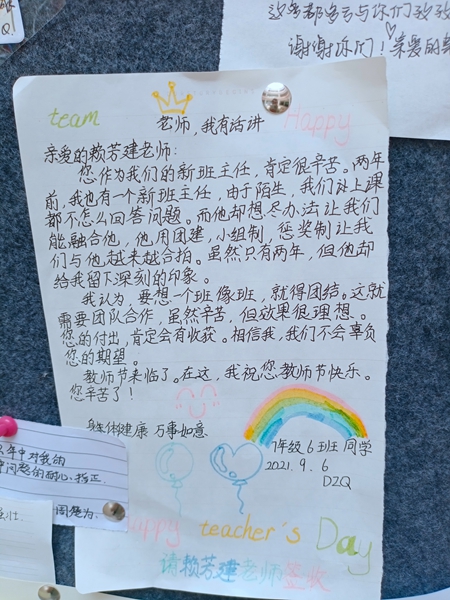 这些都多亏与你们
谢谢你们！亲爱的
team
老师，我有话讲
Happy
亲爱的赖芳建老师：
您作为我们的新班主任，肯定很辛苦。两年
前，我也有一个新班主任，由于陌生，我们让上课
都不怎么回答问题。而他却想尽办法让我们
能融合他，他用团建，小组制，惩奖制让我
们与他越来越合拍。虽然只有两年，但他却
给我留下深刻的印象。
我认为，要想一个班像班，就得团结。这就
需要团队合作，虽然辛苦，但效果很理想。
您的付出，肯定会有收获。相信我，我们不会辜负
您的期望。
教师节来临了。在这，我祝您教师节快乐。
您辛苦了！
身体健康 万事如意
7年级6班 同学
2021.9.6
DZQ
年中对我的
耐心指正
Happy teacher's Day
请赖芳建老师签收